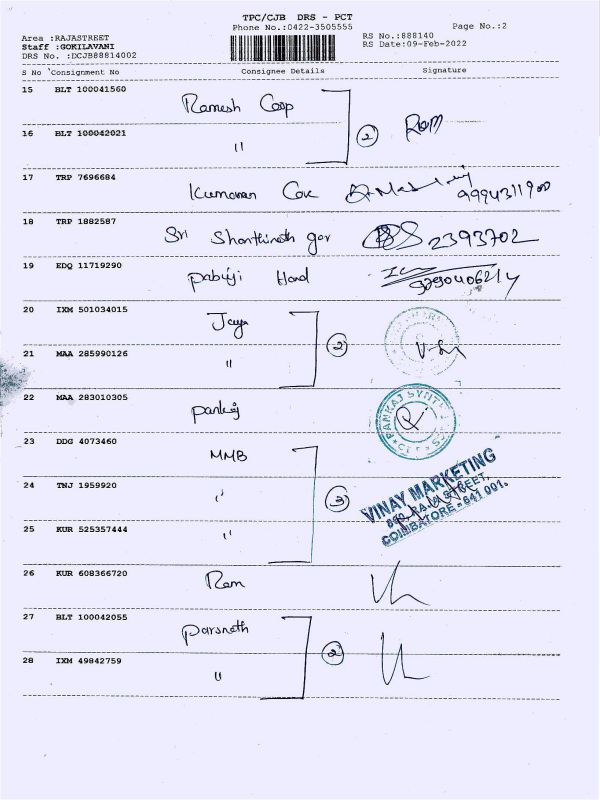 TPC/CJB DRS - PCT
Phone No.:0422-3505555
Page No.:2
Area :RAJASTREET
RS No.:888140
Staff :GOKILAVANI
RS Date:09-Feb-2022
DRS No. :DCJB88814002
S No Consignment No Consignee Details Signature
15 BLT 100041560
Ramesh Corp
2 Ram
16 BLT 100042021
"
17 TRP 7696684
Kumaran 9994311900
18 TRP 1882587
Sri Shanthinath 2393702
19 EDQ 11719290
Pabuji Hand
20 IXM 501034015
Jaya
2
21 MAA 285990126
"
22 MAA 283010305
Pankaj
PANKAJ SYNT
23 DDG 4073460
MMB
24 TNJ 1959920
"
3
VINAY MARKETING
RAJA STREET,
COIMBATORE - 641 001.
25 KUR 525357444
"
26 KUR 608366720
Ram
27 BLT 100042055
Parsnath
2
28 IXM 49842759
"